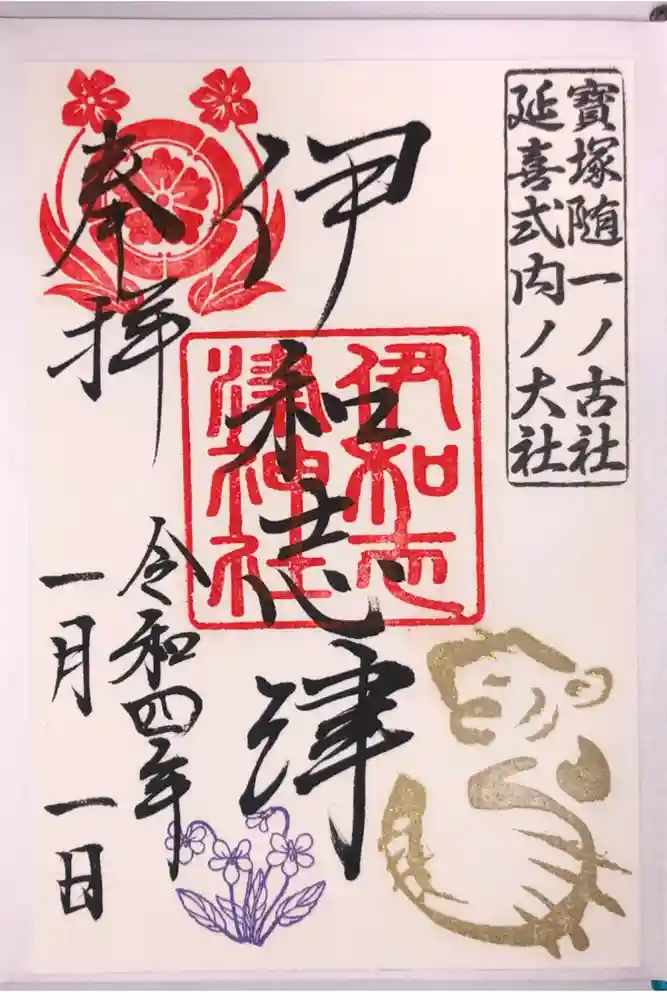 寶塚随一ノ古社
延喜式内ノ大社
伊和志津
伊和志
津神社
奉拝
令和四年
一月一日